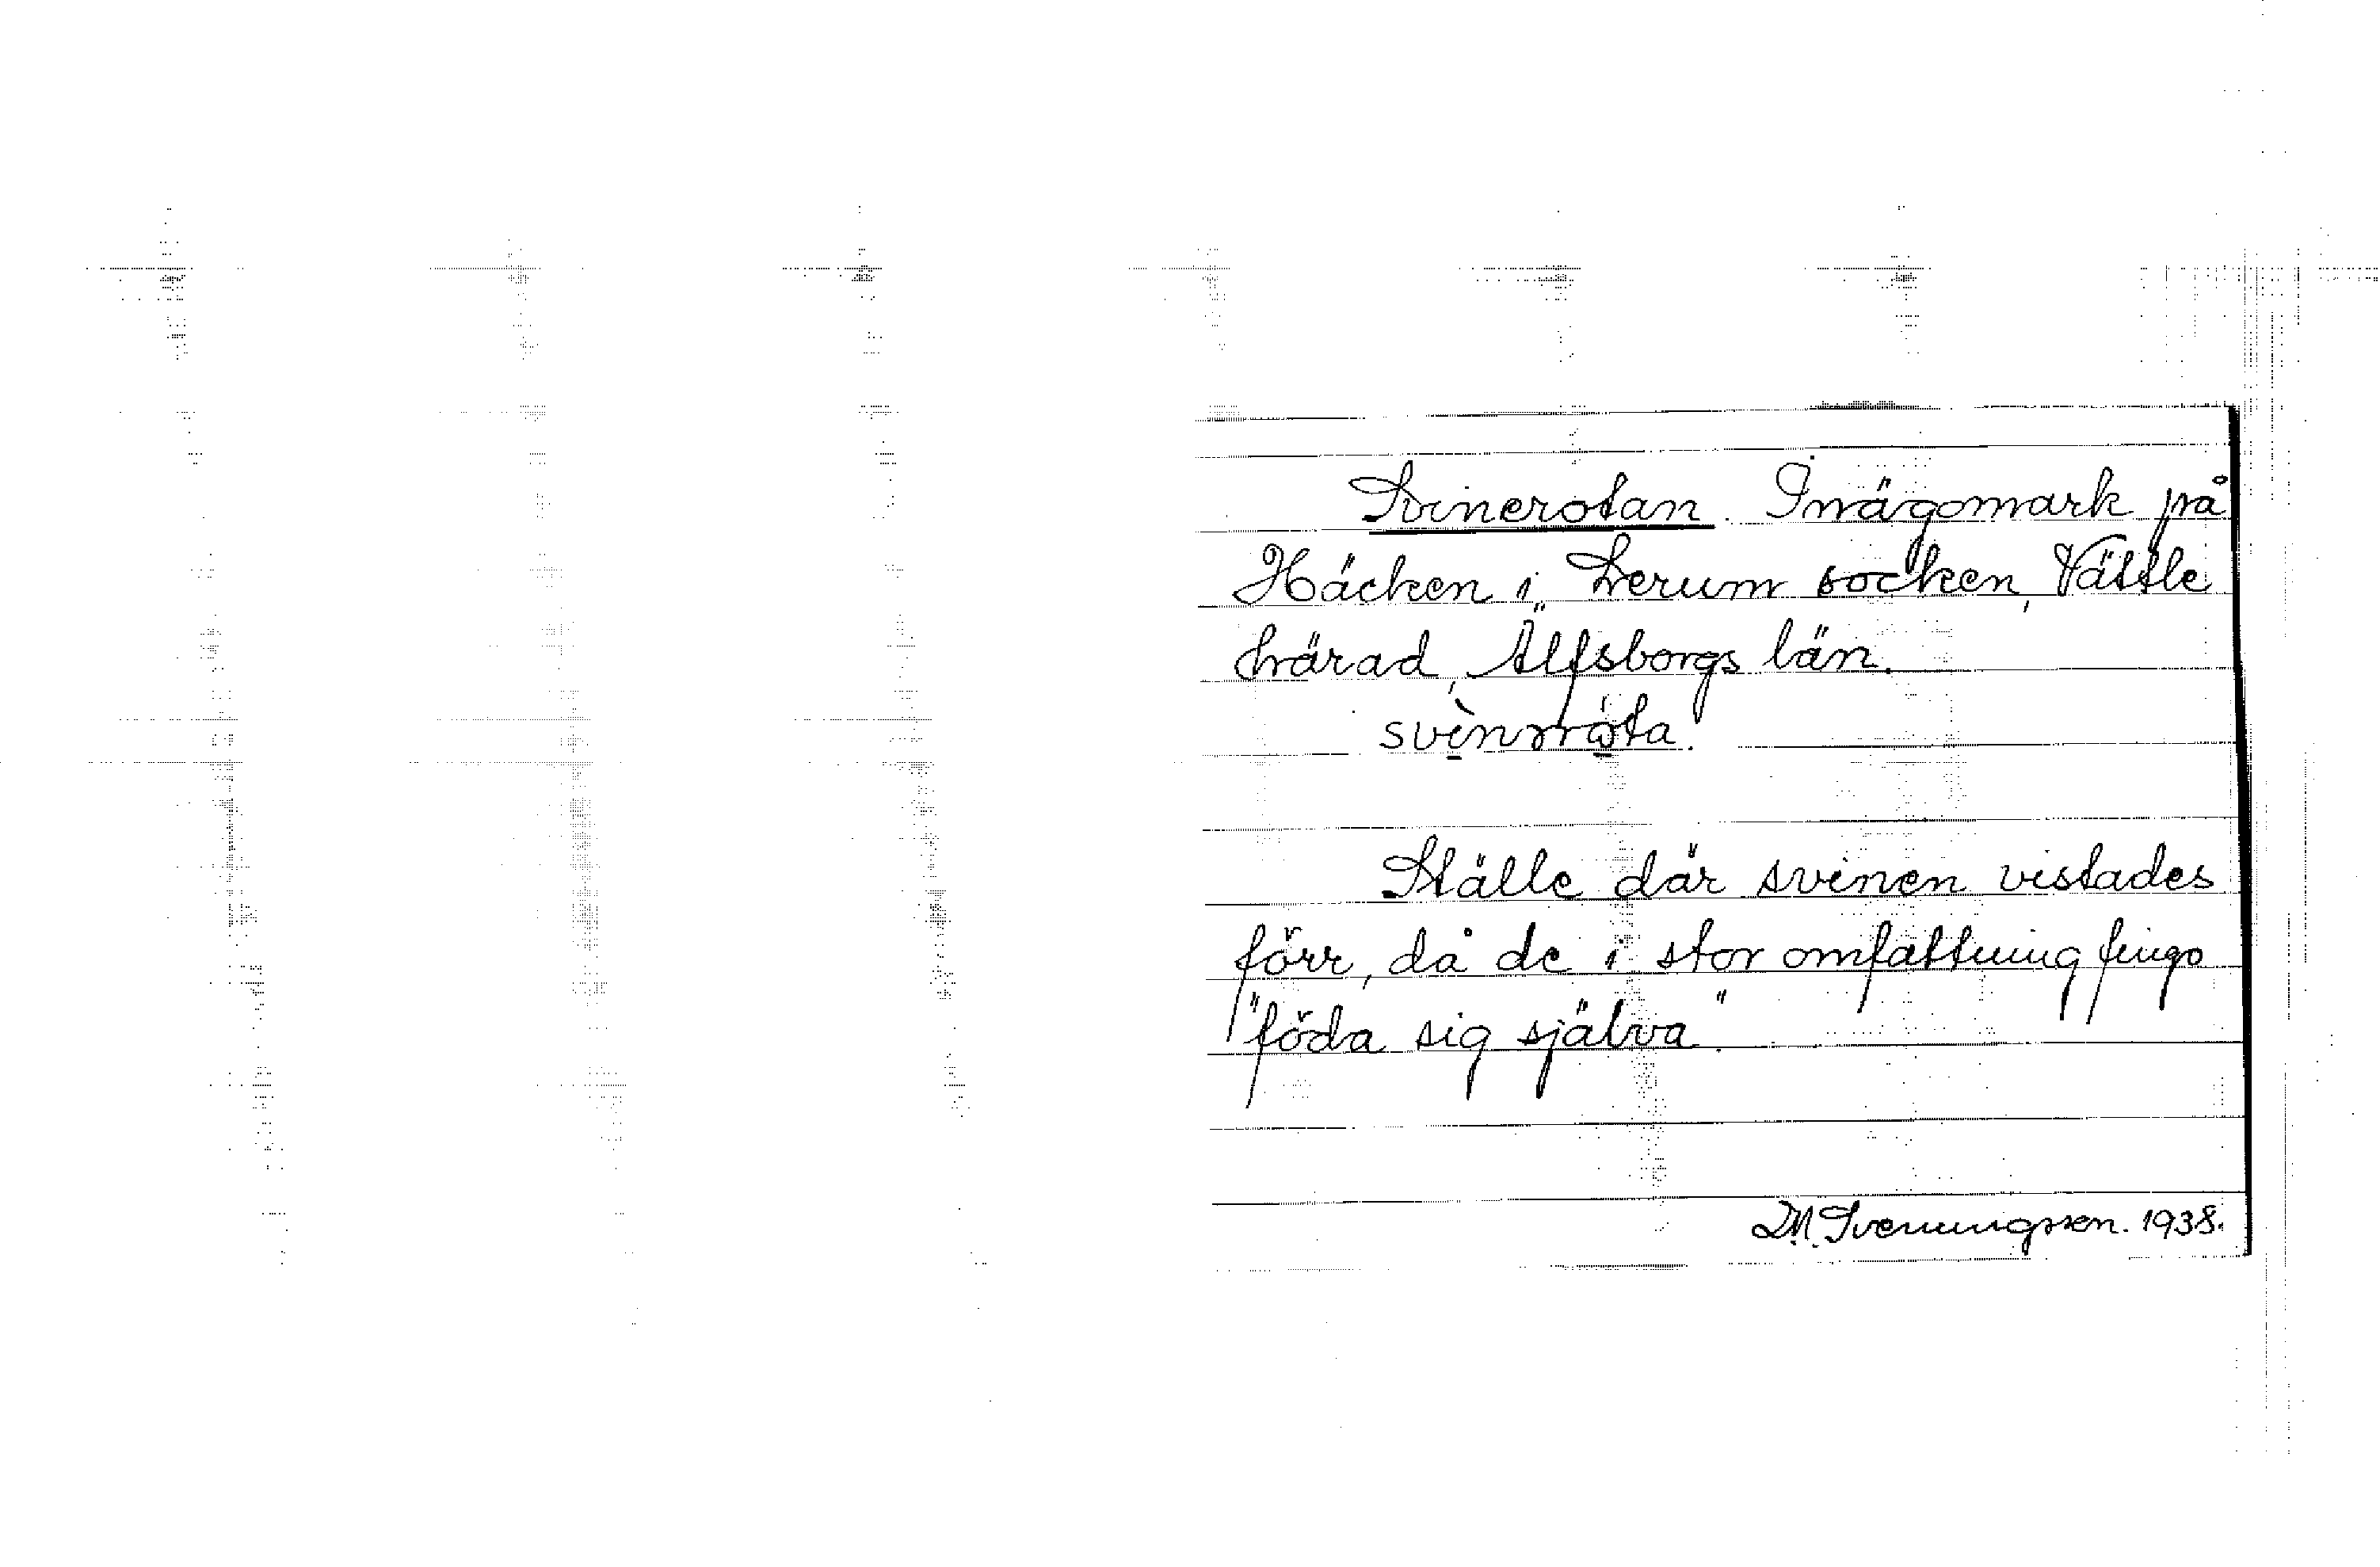 Svinerotan. Inägomark på
Häcken i Lerum socken, Vättle
härad, Älfsborgs län.
Ställe där svinen vistades
förr, då de i stor omfattning fingo
"föda sig själva".
D.N. Svenningsson. 1938.